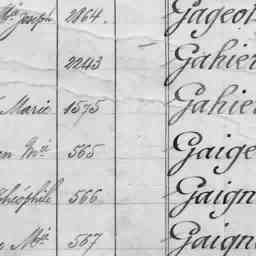 Mie Joseph 2864. Gageot
2243 Gahier
Marie 1575 Gahie
en Mie 565 Gaige
Théophile 566 Gaign
Mie 567 Gaign